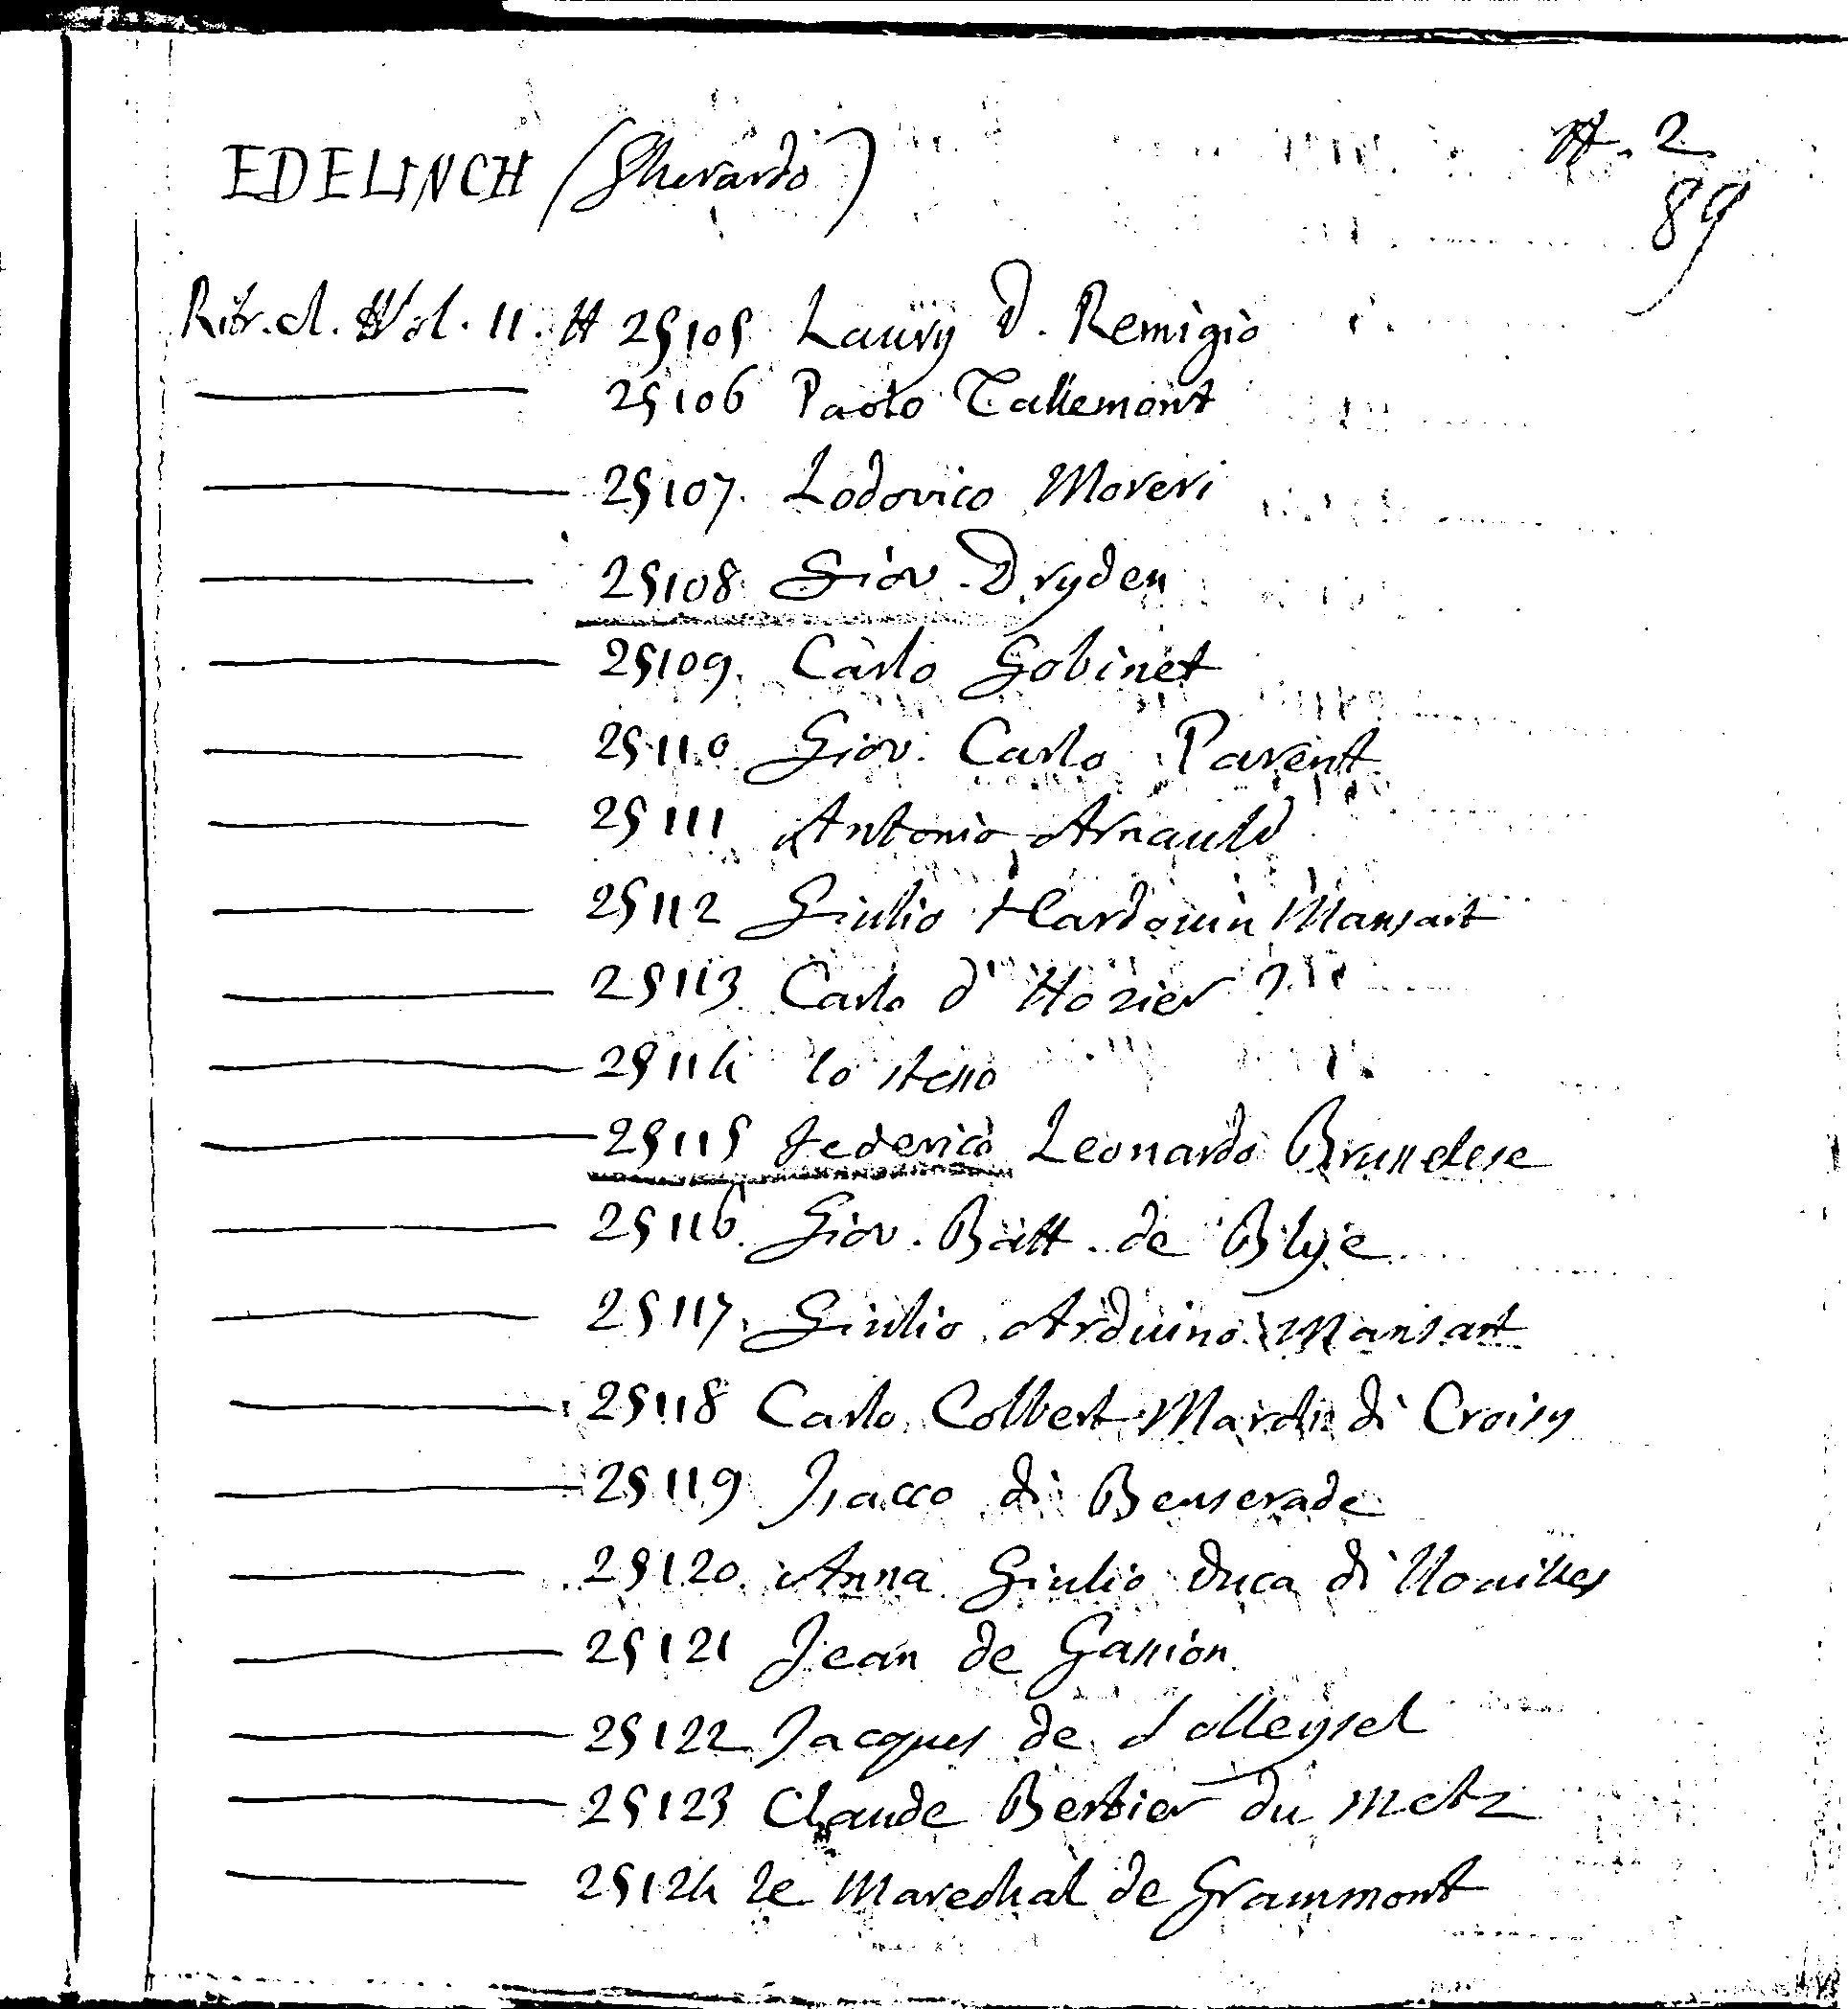 EDELINCH (Gherardo)
H. 2
89
Ritr. cl. Vol. 11. H 25105 Laury D. Remigio
25106 Paolo Tallemont
25107. Lodovico Moreri
25108 Giov. Dryden
25109. Carlo Gobinet
25110 Giov. Carlo Parent
25111 Antonio Arnauld
25112 Giulio Hardouin Mansart
25113 Carlo d'Hozier
25114 lo stesso
25115 Federico Leonardo Brusselese
25116 Giov. Batt. de Blye
25117. Giulio Arduino Mansart
25118 Carlo Colbert March. di Croisy
25119 Isacco di Benserade
25120. Anna Giulio Duca di Noailles
25121 Jean de Gassion
25122 Jacques de Solleysel
25123 Claude Berbier du Metz
25124 le Marechal de Grammont